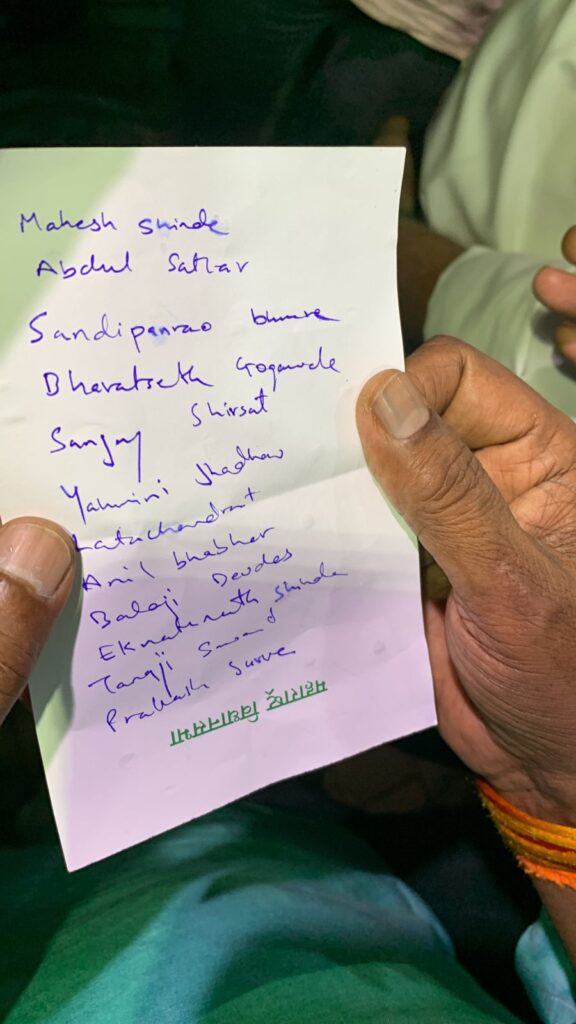 Mahesh Shinde
Abdul Sattar
Sandipanrao bhumre
Bharatseth Gogawale
Sanjay Shirsat
Yamini Jhadhav
Latachandrant
Anil bhabhar
Balaji Devdas
Eknathrath shinde
Tanaji Sawant
Prakash Surve